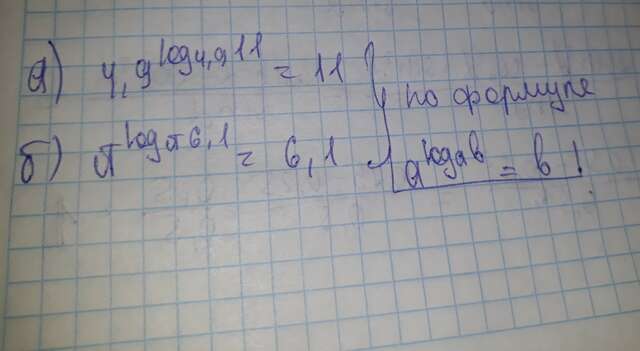 а) 4,9^log4,9 11 = 11
б) π^logπ 6,1 = 6,1
по формуле
a^logab = b!